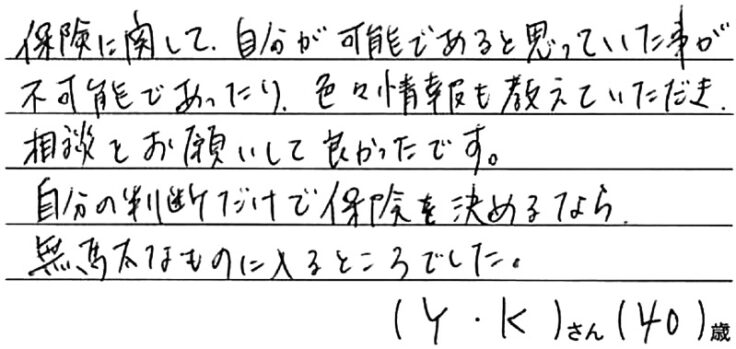 保険に関して、自分が可能であると思っていた事が
不可能であったり、色々情報も教えていただき、
相談をお願いして良かったです。
自分の判断だけで保険を決めるなら、
無駄なものに入るところでした。
(Y・K)さん(40)歳